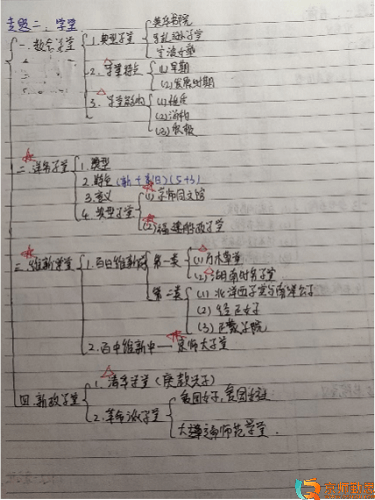 专题二：学堂
一. 教会学堂
1. 典型学堂
英华书院
马礼逊学堂
宁波女塾
2. 学堂特点
(1) 早期
(2) 发展时期
3.
(1)
(2)
(3)
二. 洋务学堂
1. 类型
2. 特点 (新+旧) (5+3)
3. 意义
4. 典型学堂
(1) 京师同文馆
(2) 福建船政学堂
三. 维新学堂
1. 百日维新前
第一类
(1) 万木草堂
(2) 湖南时务学堂
第二类
(1) 北洋西学堂与南洋公学
(2) 经正女子
(3) 正蒙书院
2. 百日维新中 — 京师大学堂
四. 新政学堂
1. 清华学堂 (庚款
2. 革命派学堂
爱国女学, 爱国学社
大通师范学堂